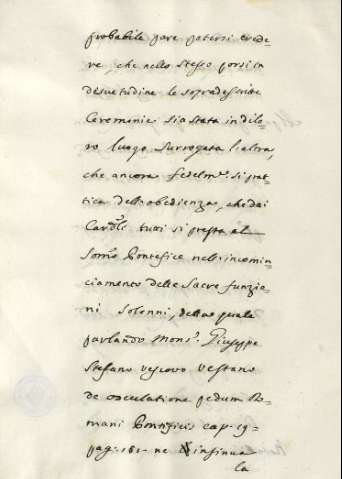 probabile pare potersi crede=
re, che nello stesso porsi in
desuetudine le sopradescritte
Ceremonie sia stata in di lo=
ro luogo surrogata l'altra,
che ancora fedelm.e si prat=
tica dell'obedienza, che dai
Card.li tutti si presta al
Som.o Pontefice nell'incomin=
ciamento delle Sacre funzio=
ni solenni, della quale
parlando Mons.r Giuseppe
Stefano vescovo Vestano
de osculatione pedum Ro=
mani Pontificis cap. 19=
pag. 181= ne insinua
la